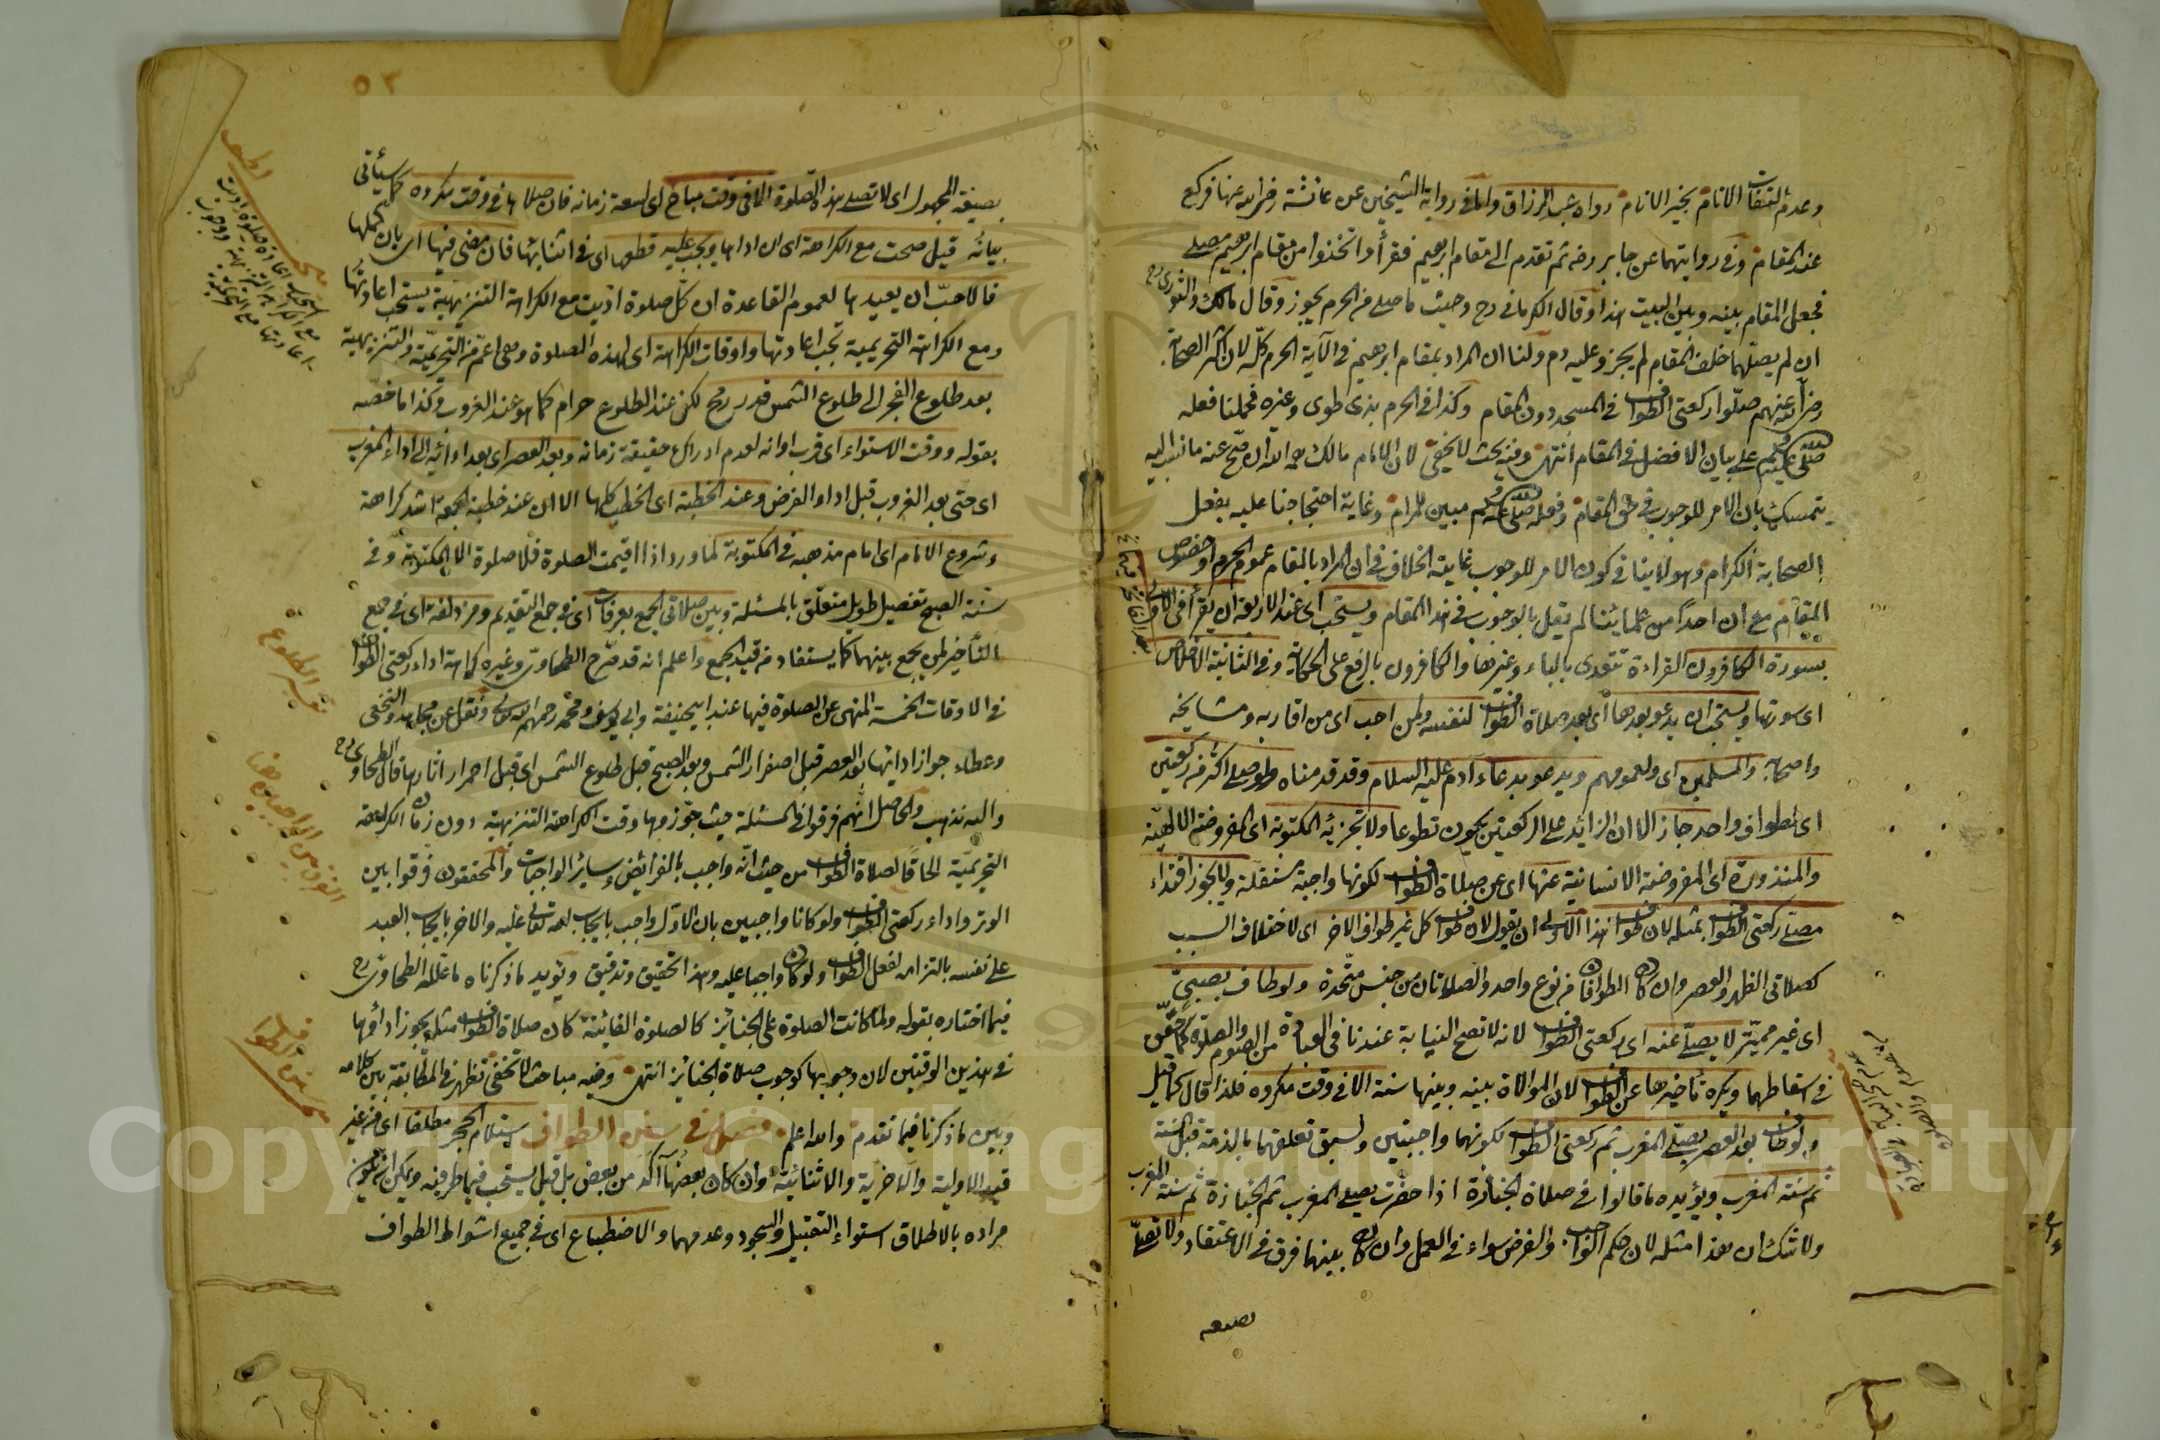 وعدم التفات الانام بخير الانام رواه عبد الرزاق واما في رواية الشيخين عن عائشة رضي الله عنها فركع
عند المقام وفي روايتهما عن جابر رضه ثم تقدم الى مقام ابرهيم فقرأ واتخذوا من مقام ابرهيم مصلى
فجعل المقام بينه وبين البيت هذا وقال الكرماني رح وحيث ما صلى من الحرم يجوز وقال مالك والثوري رح
ان لم يصلهما خلف المقام لم يجز وعليه دم ولنا ان المراد بمقام ابرهيم في الآية الحرم كله لان اكثر الصحابة
رضي الله عنهم صلوا ركعتي الطواف في المسجد دون المقام وكذا في الحرم بذي طوى وغيره فحملنا فعله
صلى الله عليه وسلم على بيان الافضل في المقام انتهى وفيه بحث لا يخفى لان الامام مالك رحمه الله ان صح عنه ما نسب اليه
يتمسك بان الامر للوجوب في حق المقام وفعله صلى الله عليه وسلم مبين للمرام وغاية احتجاجنا عليه بفعل
الصحابة الكرام وهو لا ينافي كون الامر للوجوب غايته الخلاف في ان المراد بالمقام عموم الحرم او خصوص
المقام مع ان احدا من علمائنا لم يقل بالوجوب في هذا المقام ويستحب اي عند الاربعة ان يقرأ في الاولى
بسورة الكافرون القراءة تتعدى بالباء وغيرها والكافرون بالرفع على الحكاية وفي الثانية الاخلاص
اي سورتها ويستحب ان يدعو بعدها اي بعد صلاة الطواف لنفسه ولمن احب اي من اقاربه ومشايخه
واصحابه والمسلمين اي ولعمومهم ويدعو بدعاء آدم عليه السلام وقد قدمناه ولو صلى اكثر من ركعتين
اي لطواف واحد جاز الا ان الزائد على الركعتين يكون تطوعا ولا تجزئه المكتوبة اي المفروضة الالهية
والمنذورة اي المفروضة الانسانية عنها اي عن صلاة الطواف لكونها واجبة مستقلة ولا يجوز اقتداء
مصلي ركعتي الطواف بمثله لان طواف هذا الاولى ان يقول لان طواف كل غير طواف الاخر اي لاختلاف السبب
كصلاتي الظهر والعصر وان كان الطوافان من نوع واحد والصلاتان من جنس متحدة ولو طاف بصبي
اي غير مميز لا يصلي عنه اي ركعتي الطواف لانه لا تصح النيابة عندنا في العبادة من الصوم والصلاة كما حقق
في اسقاطهما ويكره تأخيرها عن الطواف لان الموالاة بينه وبينها سنة الا في وقت مكروه فلذا قال كما قيل
ولو طاف بعد العصر يصلي المغرب ثم ركعتي الطواف لكونهما واجبتين ولسبق تعلقهما بالذمة قبل السنة
ثم سنة المغرب ويؤيده ما قالوا في صلاة الجنازة اذا حضرت يصلي المغرب ثم الجنازة ثم سنة المغرب
ولا شك ان هذا مثله لان حكم الواجب والفرض سواء في العمل وان كان بينهما فرق في الاعتقاد ولا تصلى
بصيغة
٥٣
بصيغة المجهول اي لا تصلى هذه الصلوة الا في وقت مباح اي لسعة زمانه فان صلاها في وقت مكروه كما سيأتي
بيانه قيل صحت مع الكراهة اي ان اداها ويجب عليه قطعها اي في اثنائها فان مضى فيها اي بان كملها
فالاحب ان يعيدها لعموم القاعدة ان كل صلوة اديت مع الكراهة التنزيهية يستحب اعادتها
ومع الكراهة التحريمية تجب اعادتها واوقات الكراهة اي لهذه الصلوة وهي اعم من التحريمية والتنزيهية
بعد طلوع الفجر الى طلوع الشمس قدر رمح لكن عند الطلوع حرام كما هو عند الغروب وكذا ما خصه
بقوله ووقت الاستواء اي قرب اوانه لعدم ادراك حقيقة زمانه وبعد العصر اي بعد ادائه الى اداء المغرب
اي حتى بعد الغروب قبل اداء الفرض وعند الخطبة اي الخطب كلها الا ان عند خطبة الجمعة اشد كراهة
وشروع الامام اي امام مذهبه في المكتوبة لما ورد اذا اقيمت الصلوة فلا صلوة الا المكتوبة وفي
سنة الصبح تفصيل طويل متعلق بالمسئلة وبين صلاتي الجمع بعرفات اي في جمع التقديم ومزدلفة اي في جمع
التأخير لمن يجمع بينهما كما يستفاد من قيد الجمع واعلم انه قد صرح الطحاوي وغيره كراهة اداء ركعتي الطواف
في الاوقات الخمسة المنهي عن الصلوة فيها عند ابي حنيفة وابي يوسف ومحمد رحمهم الله تعالى ونقل عن مجاهد والنخعي
وعطاء جواز ادائها بعد العصر قبل اصفرار الشمس وبعد الصبح قبل طلوع الشمس اي قبل احمرار اثارها قال الطحاوي رح
واليه نذهب والحاصل انهم فرقوا في المسئلة حيث جوزوها وقت الكراهة التنزيهية دون زمان الكراهة
التحريمية الحاقا لصلاة الطواف من حيث انه واجب بالفرائض وسائر الواجبات والمحققون فرقوا بين
الوتر واداء ركعتي الطواف ولو كانا واجبين بان الاول واجب بايجاب الله تعالى عليه والاخر بايجاب العبد
على نفسه بالتزامه لفعل الطواف ولو كان واجبا عليه وهذا تحقيق وتدقيق ويؤيد ما ذكرناه ما علله الطحاوي رح
فيما اختاره بقوله ولما كانت الصلوة على الجنائز كالصلوة الفائتة كان صلاة الطواف مثله يجوز اداؤها
في هذين الوقتين لان وجوبها كوجوب صلاة الجنائز انتهى وفيه مباحث لا تخفى تظهر في المطابقة بين كلامه
وبين ما ذكرنا فيما تقدم والله اعلم فصل في سنن الطواف استلام الحجر مطلقا اي من غير
قيد الاولية والآخرية والاثنائية وان كان بعضها آكد من بعض بل قيل يستحب فيما طرفيه ويمكن ان يكون
مراده بالاطلاق استواء التقبيل والسجود وعدمهما والاضطباع اي في جميع اشواط الطواف
الفرق بين الواجبين هنا
سنن الطواف
Copyright © King Saud University